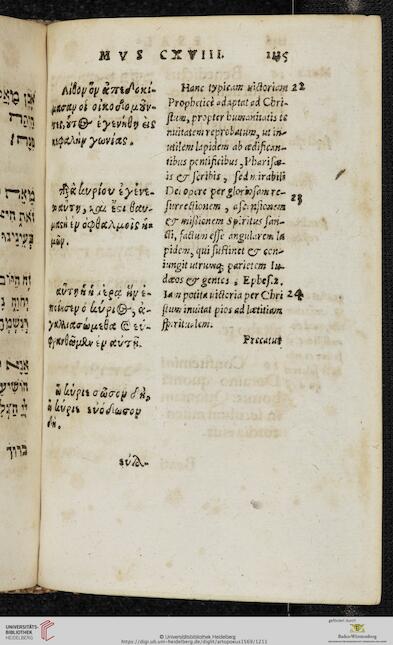 MVS CXVIII.
λίθον ὃν ἀπεδοκί-
μασαν οἱ οἰκοδομοῦν-
τες, οὗτος ἐγενήθη εἰς
κεφαλὴν γωνίας.
παρὰ κυρίου ἐγένε-
το αὕτη, καὶ ἔστι θαυ-
μαστὴ ἐν ὀφθαλμοῖς ἡ-
μῶν.
αὕτη ἡ ἡμέρα ἣν ἐ-
ποίησεν ὁ κύριος, ἀ-
γαλλιασώμεθα καὶ εὐ-
φρανθῶμεν ἐν αὐτῇ.
ὦ κύριε σῶσον δὴ,
ὦ κύριε εὐόδωσον
δή.
εὐλο-
Hanc typicam victoriam 22
Propheticè adaptat ad Chri-
stum, propter humanitatis te
nuitatem reprobatum, ut in-
utilem lapidem ab ædifican-
tibus pontificibus, Pharisæ-
is & scribis, sed mirabili
Dei opere per gloriosam re- 23
surrectionem, ascensionem
& missionem Spiritus san-
cti, factum esse angularem la
pidem, qui sustinet & con-
iungit utrumq; parietem Iu-
dæos & gentes, Ephes. 2.
Iam potita victoria per Chri 24
stum invitat pios ad lætitiam
spiritualem.
Precatus
UNIVERSITÄTS-
BIBLIOTHEK
HEIDELBERG
© Universitätsbibliothek Heidelberg
https://digi.ub.uni-heidelberg.de/diglit/artopoeus1569/1211
gefördert durch
Baden-Württemberg